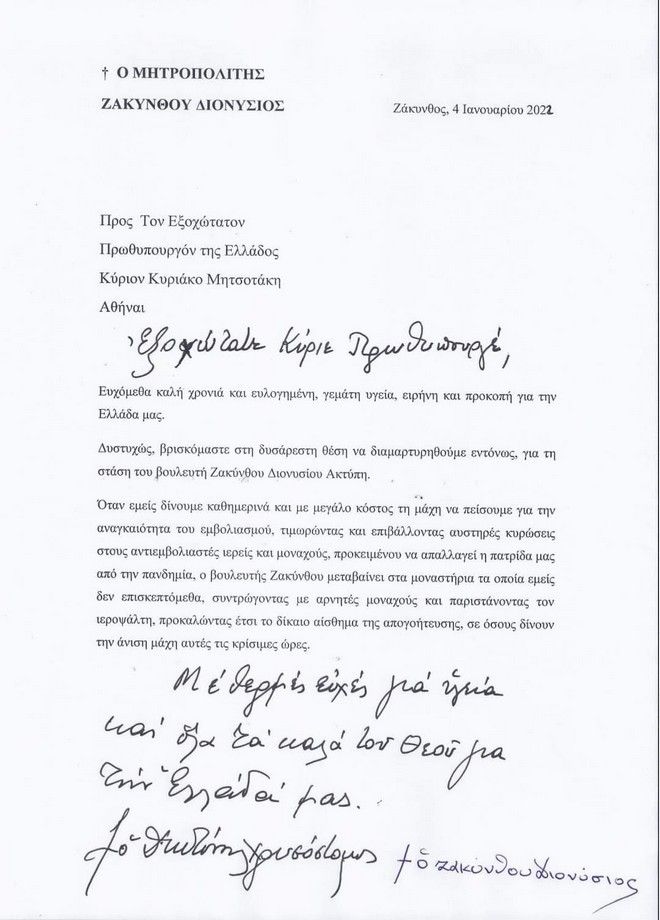 † Ο ΜΗΤΡΟΠΟΛΙΤΗΣ
ΖΑΚΥΝΘΟΥ ΔΙΟΝΥΣΙΟΣ
Ζάκυνθος, 4 Ιανουαρίου 2022
Προς Τον Εξοχώτατον
Πρωθυπουργόν της Ελλάδος
Κύριον Κυριάκο Μητσοτάκη
Αθήναι
Ἐξοχώτατε Κύριε Πρωθυπουργέ,
Ευχόμεθα καλή χρονιά και ευλογημένη, γεμάτη υγεία, ειρήνη και προκοπή για την
Ελλάδα μας.
Δυστυχώς, βρισκόμαστε στη δυσάρεστη θέση να διαμαρτυρηθούμε εντόνως, για τη
στάση του βουλευτή Ζακύνθου Διονυσίου Ακτύπη.
Όταν εμείς δίνουμε καθημερινά και με μεγάλο κόστος τη μάχη να πείσουμε για την
αναγκαιότητα του εμβολιασμού, τιμωρώντας και επιβάλλοντας αυστηρές κυρώσεις
στους αντιεμβολιαστές ιερείς και μοναχούς, προκειμένου να απαλλαγεί η πατρίδα μας
από την πανδημία, ο βουλευτής Ζακύνθου μεταβαίνει στα μοναστήρια τα οποία εμείς
δεν επισκεπτόμεθα, συντρώγοντας με αρνητές μοναχούς και παριστάνοντας τον
ιεροψάλτη, προκαλώντας έτσι το δίκαιο αίσθημα της απογοήτευσης, σε όσους δίνουν
την άνιση μάχη αυτές τις κρίσιμες ώρες.
Μέ θερμές εὐχές γιά ὑγεία
καί ὅλα τά καλά τοῦ Θεοῦ για
τήν Ἑλλάδά μας.
† ὁ Δωδώνης Χρυσόστομος † ὁ Ζακύνθου Διονύσιος